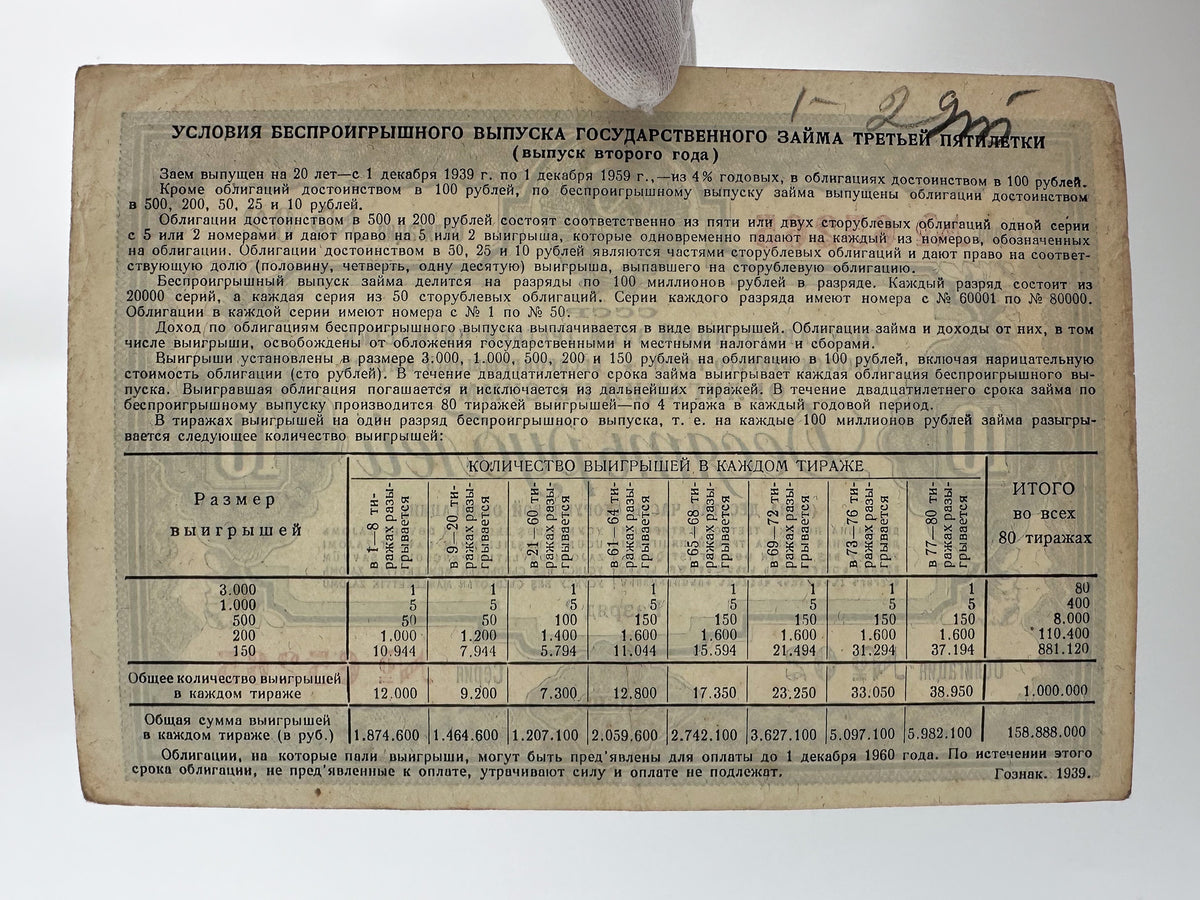 УСЛОВИЯ БЕСПРОИГРЫШНОГО ВЫПУСКА ГОСУДАРСТВЕННОГО ЗАЙМА ТРЕТЬЕЙ ПЯТИЛЕТКИ
(выпуск второго года)
Заем выпущен на 20 лет—с 1 декабря 1939 г. по 1 декабря 1959 г.,—из 4% годовых, в облигациях достоинством в 100 рублей.
Кроме облигаций достоинством в 100 рублей, по беспроигрышному выпуску займа выпущены облигации достоинством
в 500, 200, 50, 25 и 10 рублей.
Облигации достоинством в 500 и 200 рублей состоят соответственно из пяти или двух сторублевых облигаций одной серии
с 5 или 2 номерами и дают право на 5 или 2 выигрыша, которые одновременно падают на каждый из номеров, обозначенных
на облигации. Облигации достоинством в 50, 25 и 10 рублей являются частями сторублевых облигаций и дают право на соответ-
ствующую долю (половину, четверть, одну десятую) выигрыша, выпавшего на сторублевую облигацию.
Беспроигрышный выпуск займа делится на разряды по 100 миллионов рублей в разряде. Каждый разряд состоит из
20000 серий, а каждая серия из 50 сторублевых облигаций. Серии каждого разряда имеют номера с № 60001 по № 80000.
Облигации в каждой серии имеют номера с № 1 по № 50.
Доход по облигациям беспроигрышного выпуска выплачивается в виде выигрышей. Облигации займа и доходы от них, в том
числе выигрыши, освобождены от обложения государственными и местными налогами и сборами.
Выигрыши установлены в размере 3.000, 1.000, 500, 200 и 150 рублей на облигацию в 100 рублей, включая нарицательную
стоимость облигации (сто рублей). В течение двадцатилетнего срока займа выигрывает каждая облигация беспроигрышного вы-
пуска. Выигравшая облигация погашается и исключается из дальнейших тиражей. В течение двадцатилетнего срока займа по
беспроигрышному выпуску производится 80 тиражей выигрышей—по 4 тиража в каждый годовой период.
В тиражах выигрышей на один разряд беспроигрышного выпуска, т. е. на каждые 100 миллионов рублей займа разыгры-
вается следующее количество выигрышей:
Размер выигрышей
КОЛИЧЕСТВО ВЫИГРЫШЕЙ В КАЖДОМ ТИРАЖЕ
ИТОГО во всех 80 тиражах
в 1—8 ти-
ражах разы-
грывается
в 9—20 ти-
ражах разы-
грывается
в 21—60 ти-
ражах разы-
грывается
в 61—64 ти-
ражах разы-
грывается
в 65—68 ти-
ражах разы-
грывается
в 69—72 ти-
ражах разы-
грывается
в 73—76 ти-
ражах разы-
грывается
в 77—80 ти-
ражах разы-
грывается
3.000 1 1 1 1 1 1 1 1 80
1.000 5 5 5 5 5 5 5 5 400
500 50 50 100 150 150 150 150 150 8.000
200 1.000 1.200 1.400 1.600 1.600 1.600 1.600 1.600 110.400
150 10.944 7.944 5.794 11.044 15.594 21.494 31.294 37.194 881.120
Общее количество выигрышей
в каждом тираже 12.000 9.200 7.300 12.800 17.350 23.250 33.050 38.950 1.000.000
Общая сумма выигрышей
в каждом тираже (в руб.) 1.874.600 1.464.600 1.207.100 2.059.600 2.742.100 3.627.100 5.097.100 5.982.100 158.888.000
Облигации, на которые пали выигрыши, могут быть пред'явлены для оплаты до 1 декабря 1960 года. По истечении этого
срока облигации, не пред'явленные к оплате, утрачивают силу и оплате не подлежат.
Гознак. 1939.